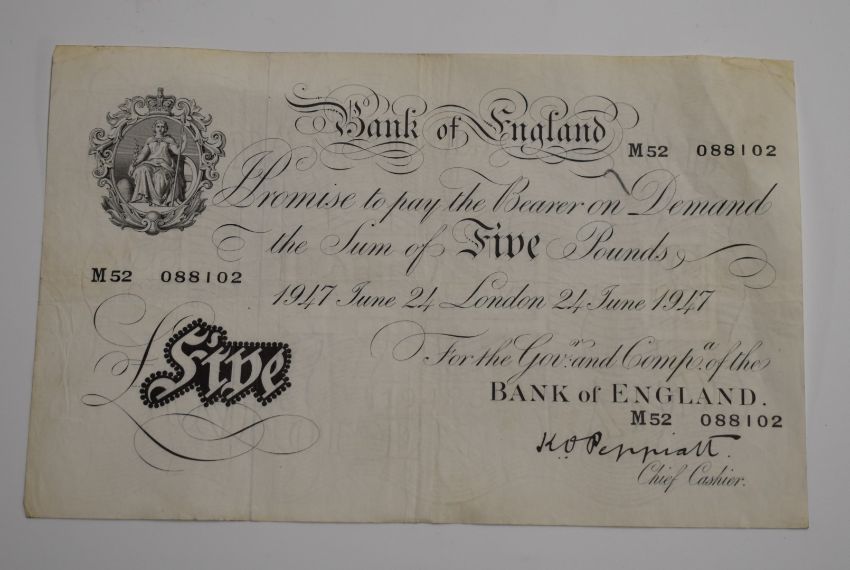 Bank of England
M52 088102
I Promise to pay the Bearer on Demand
the Sum of Five Pounds
M52 088102
1947 June 24 London 24 June 1947
£Five
For the Gov.r and Comp.a of the
BANK of ENGLAND.
M52 088102
K O Peppiatt.
Chief Cashier.